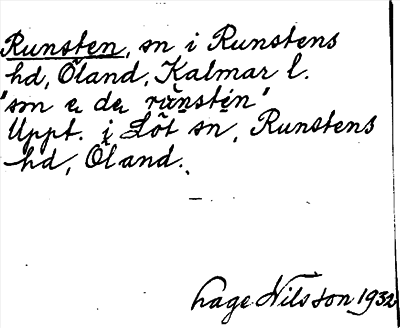 Runsten, sn i Runstens
hd, Öland, Kalmar l.
'sm e de ränstén'
Uppt. i Löt sn, Runstens
hd, Öland.
Lage Nilsson 1932